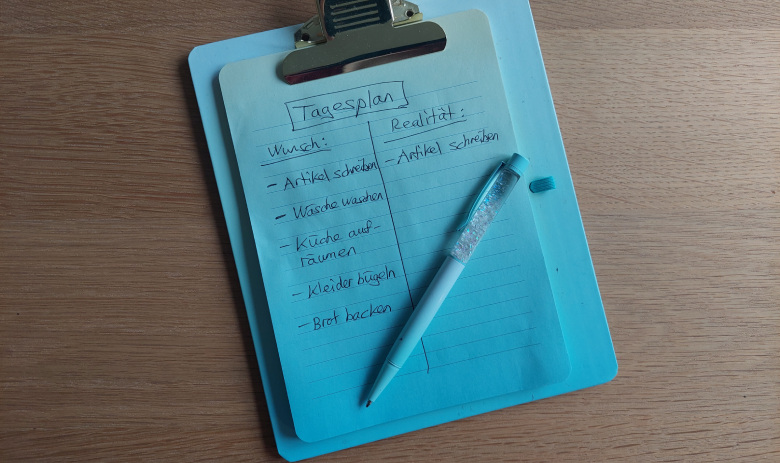 Tagesplan
Wunsch:
- Artikel schreiben
- Wäsche waschen
- Küche auf-
räumen
- Kleider bügeln
- Brot backen
Realität:
- Artikel schreiben